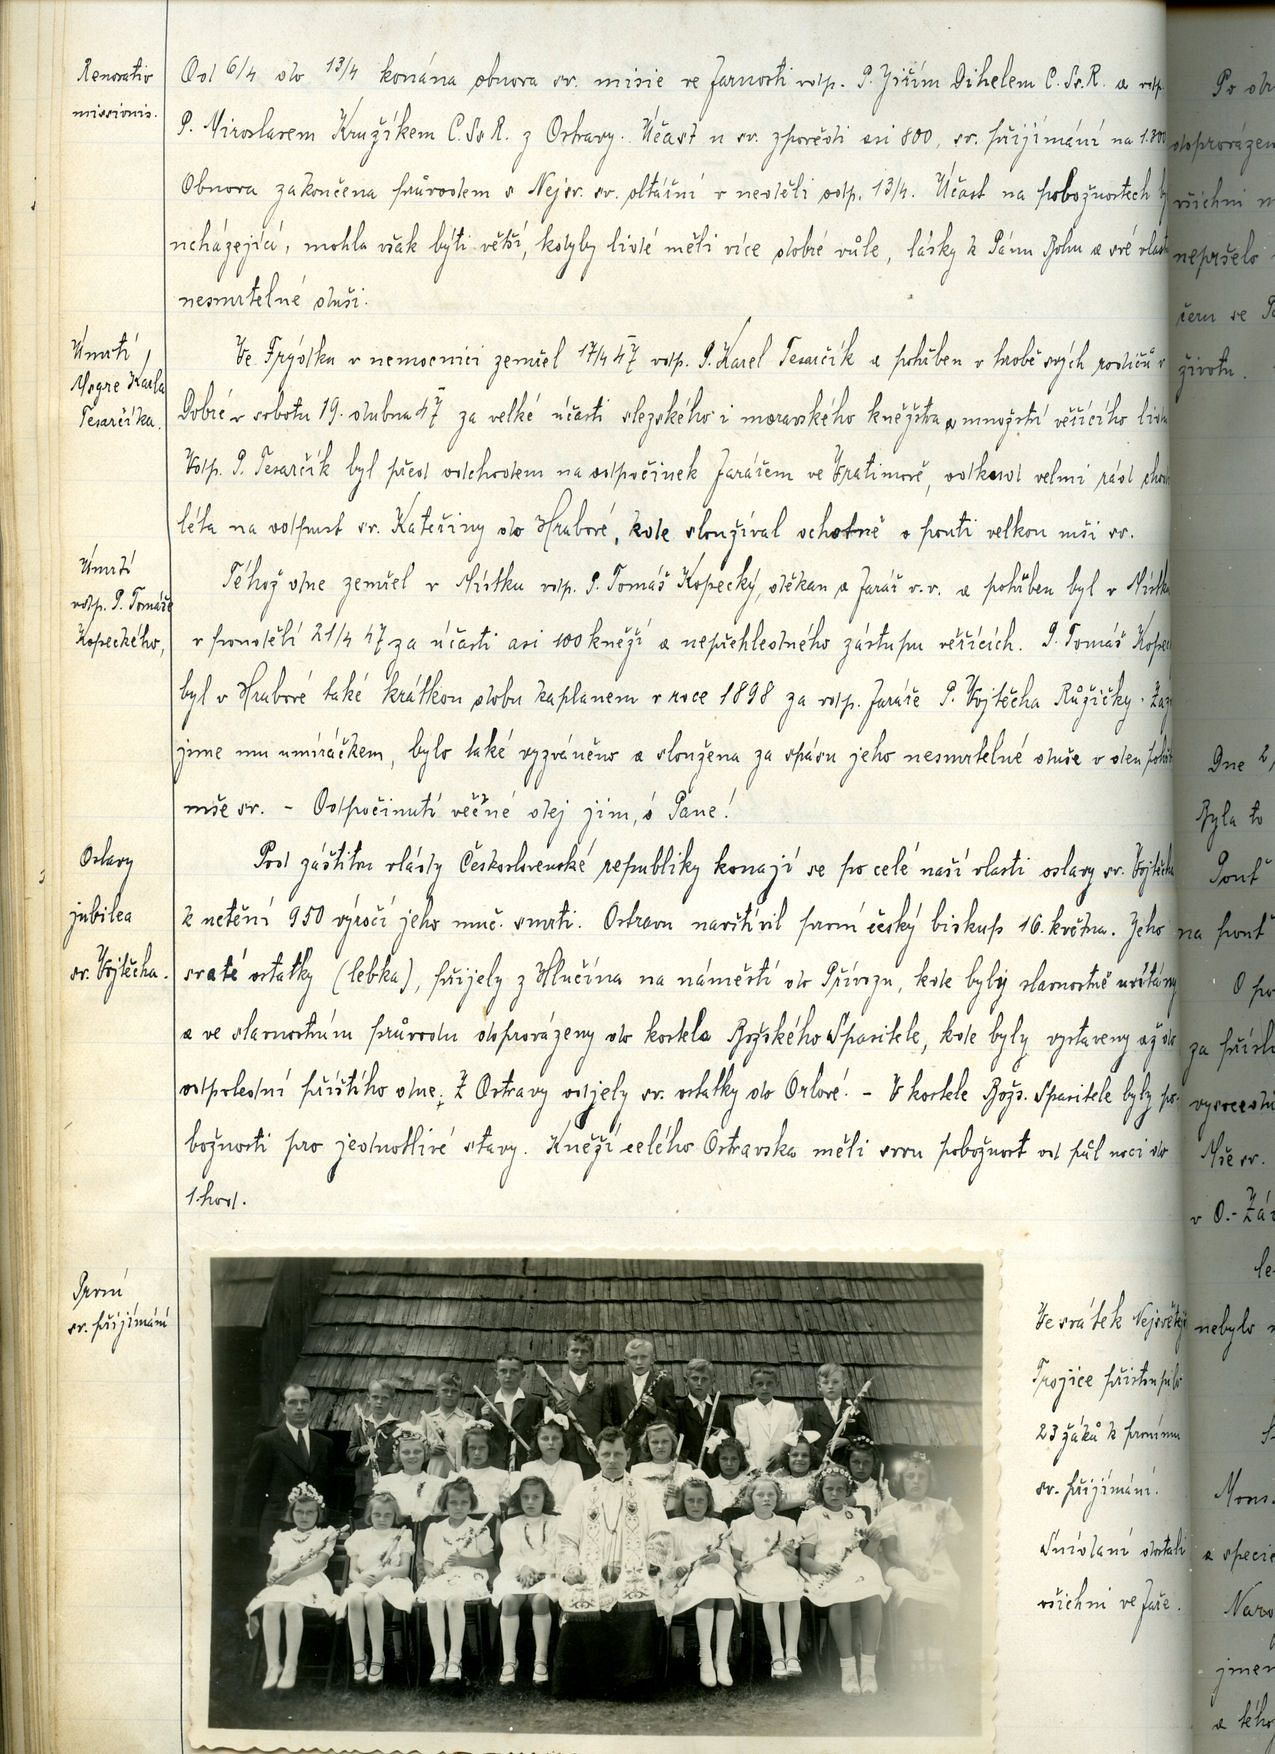 Renovatio
missionis.
Od 6/4 do 13/4 konána obnova sv. misie ve farnosti vdp. P. Jiřím Dihelem C.Ss.R. a vdp.
P. Miroslavem Kružíkem C.Ss.R. z Ostravy. Účast u sv. zpovědi asi 800, sv. přijímání na 1.300
Obnova zakončena průvodem s Nejsv. sv. oltářní v neděli odp. 13/4. Účast na pobožnostech
ucházející, mohla však býti větší, kdyby lidé měli více dobré vůle, lásky k Pánu Bohu a své
nesmrtelné duši.
Úmrtí
Msgre Karla
Tesarčíka.
Ve Frýdku v nemocnici zemřel 17/4 47 vdp. P. Karel Tesarčík a pohřben v hrobě svých rodičů v
Dobré v sobotu 19. dubna 47 za velké účasti slezského i moravského kněžstva a množství věřícího
Vdp. P. Tesarčík byl před odchodem na odpočinek farářem ve Vratimově, odkud velmi rád
léta na odpust sv. Kateřiny do Hrabové, kde sloužíval ochotně o pouti velkou mši sv.
Úmrtí
vdp. P. Tomáše
Kopeckého,
Téhož dne zemřel v Místku vdp. P. Tomáš Kopecký, děkan a farář v.v. a pohřben byl v Místku
v pondělí 21/4 47 za účasti asi 100 kněží a nepřehledného zástupu věřících. P. Tomáš
byl v Hrabové také krátkou dobu kaplanem v roce 1898 za vdp. faráře P. Vojtěcha Růžičky.
jsme mu umíráčkem, bylo také vyzváněno a sloužena za spásu jeho nesmrtelné duše v den
mše sv. - Odpočinutí věčné dej jim, ó Pane!
Oslavy
jubilea
sv. Vojtěcha.
Pod záštitou vlády Československé republiky konají se po celé naší vlasti oslavy sv. Vojtěcha
k uctění 950 výročí jeho muč. smrti. Ostravu navštívil první český biskup 16. května. Jeho
svaté ostatky (lebka), přijely z Hlučína na náměstí do Přívozu, kde byly slavnostně uvítány
a ve slavnostním průvodu doprovázeny do kostela Božského Spasitele, kde byly vystaveny až do
odpoledne příštího dne. Z Ostravy odjely sv. ostatky do Orlové. - V kostele Božs. Spasitele byly po-
božnosti pro jednotlivé stavy. Kněží celého Ostravska měli svou pobožnost od půl noci do
1 hod.
První
sv. přijímání
Ve svátek Nejsvětější
Trojice přistoupilo
23 žáků k prvnímu
sv. přijímání.
Snídani dostali
všichni ve faře.
Po
doprovázen
všichni
nepršelo
čeru se
životu.
Dne 2/
Byla to
Pouť
na pouť
O
za
Mše sv.
v O.-
nebylo
Mons.
a
Naro
jmen
a